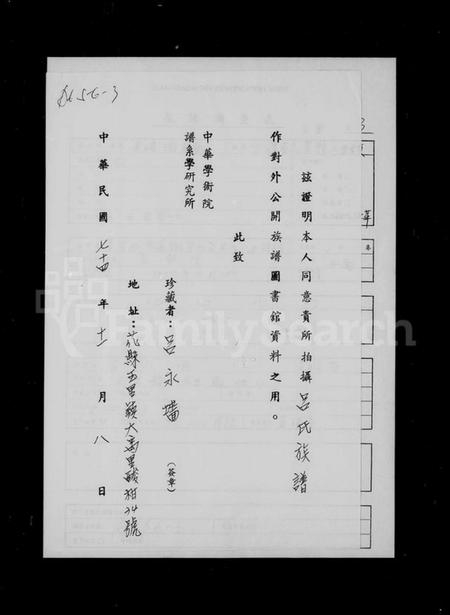 兹證明本人同意貴所拍攝呂氏族譜
作對外公開族譜圖書館資料之用。
此致
中華學術院
譜系學研究所
珍藏者：呂永墻（簽章）
地址：花縣玉里鎮大禹里酸柑34號
中華民國七十四年十一月八日
FamilySearch